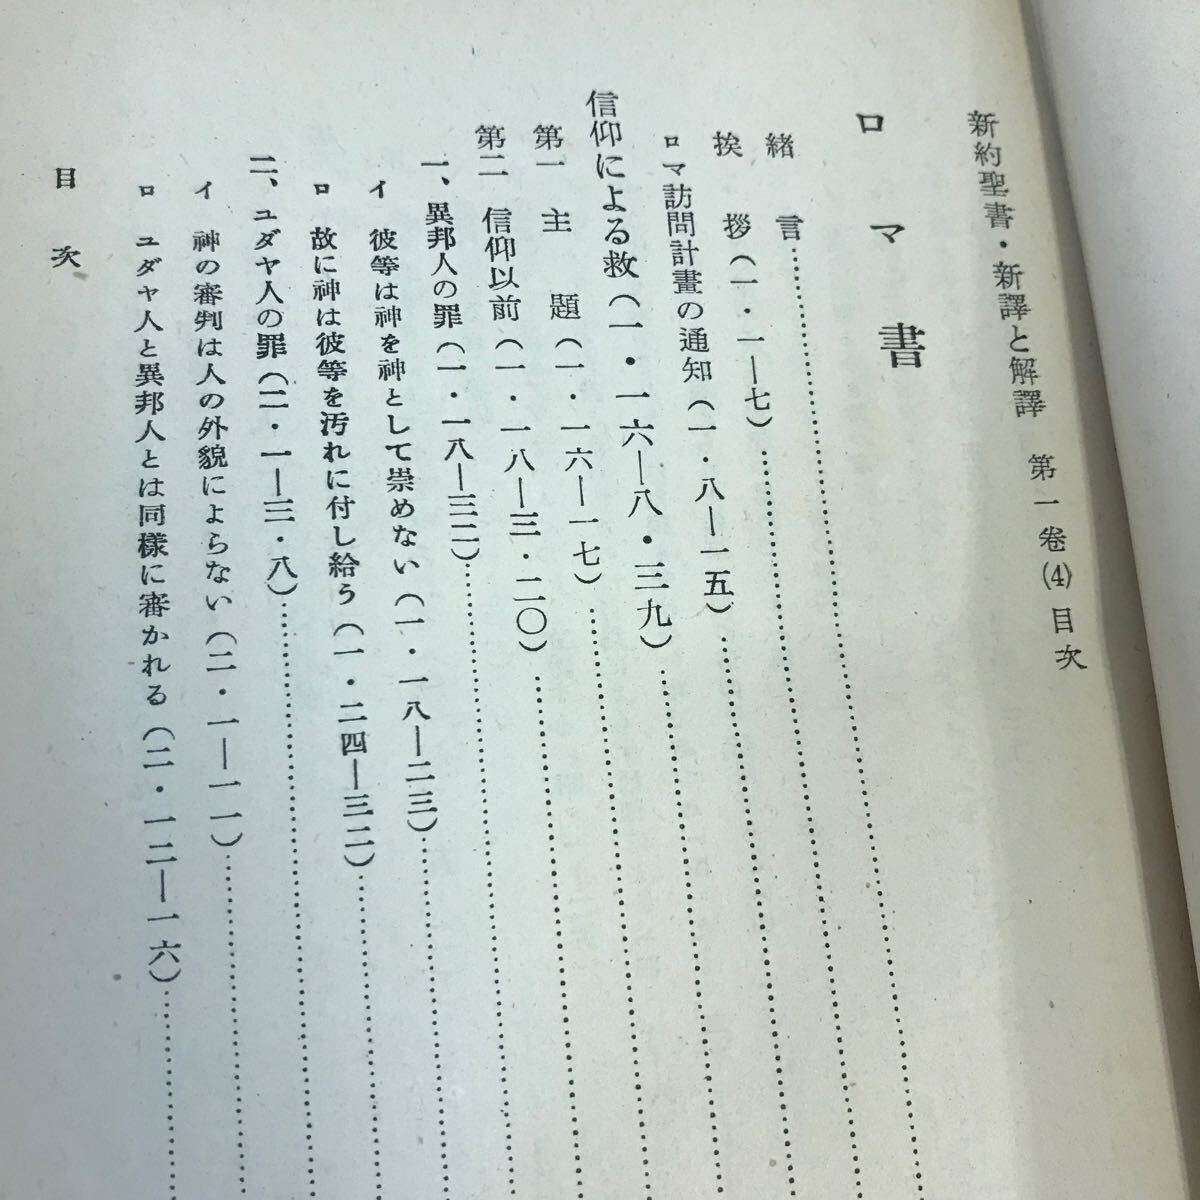 新約聖書・新譯と解譯　第一卷(4)目次
ロマ書
緒言
挨拶(一・一―七)
ロマ訪問計畫の通知(一・八―一五)
信仰による救(一・一六―八・三九)
第一　主題(一・一六―一七)
第二　信仰以前(一・一八―三・二〇)
一、異邦人の罪(一・一八―三二)
イ　彼等は神を神として崇めない(一・一八―二三)
ロ　故に神は彼等を汚れに付し給う(一・二四―三二)
二、ユダヤ人の罪(二・一―三・八)
イ　神の審判は人の外貌によらない(二・一―一一)
ロ　ユダヤ人と異邦人とは同様に審かれる(二・一二―一六)
目次